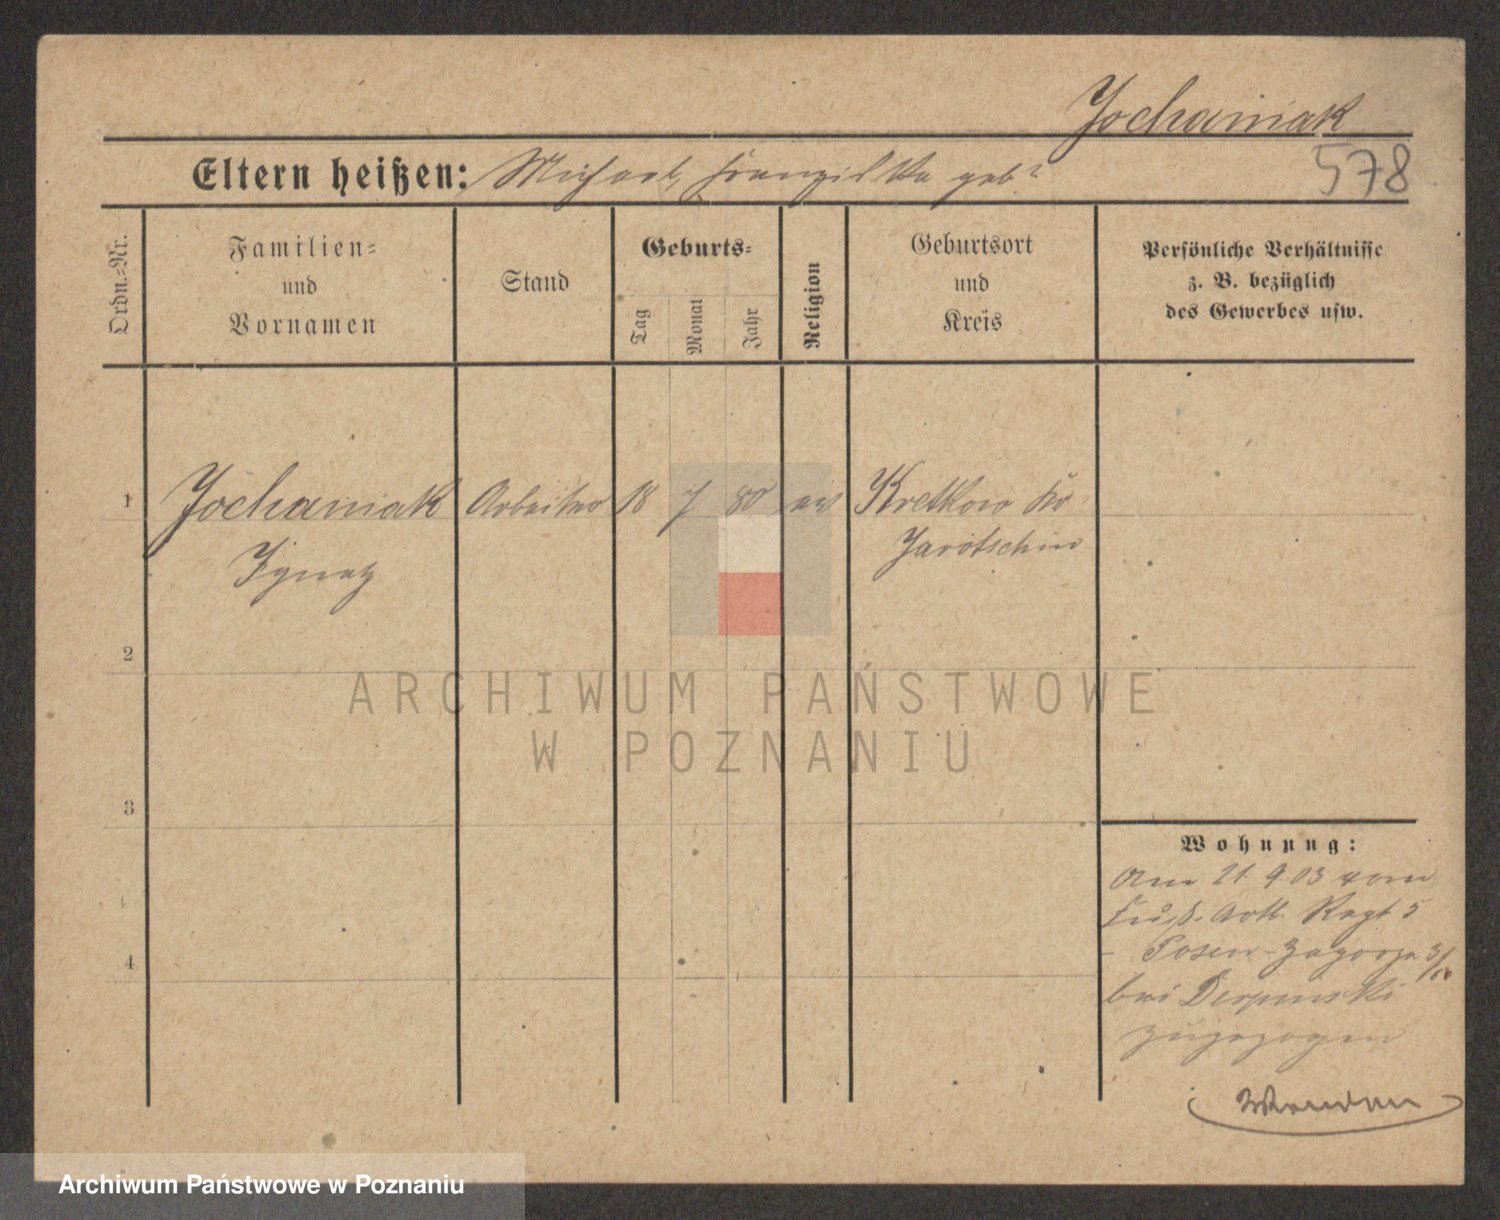 Jochaniak
578
Eltern heißen: Michael, Franziska geb?
Ordn.-Nr.
Familien-
und
Vornamen
Stand
Geburts-
Tag
Monat
Jahr
Religion
Geburtsort
und
Kreis
Persönliche Verhältnisse
z. B. bezüglich
des Gewerbes usw.
1 Jochaniak Arbeiter 18 7 80 Kretkow Kr
Ignatz Jarotschin
2
ARCHIWUM PAŃSTWOWE
W POZNANIU
3
Wohnung:
Am 21. 9. 03 vom
Fuß. Artl. Regt 5
4
- Posen - Zagorze 3/
bei Derpinski
zugezogen
Archiwum Państwowe w Poznaniu